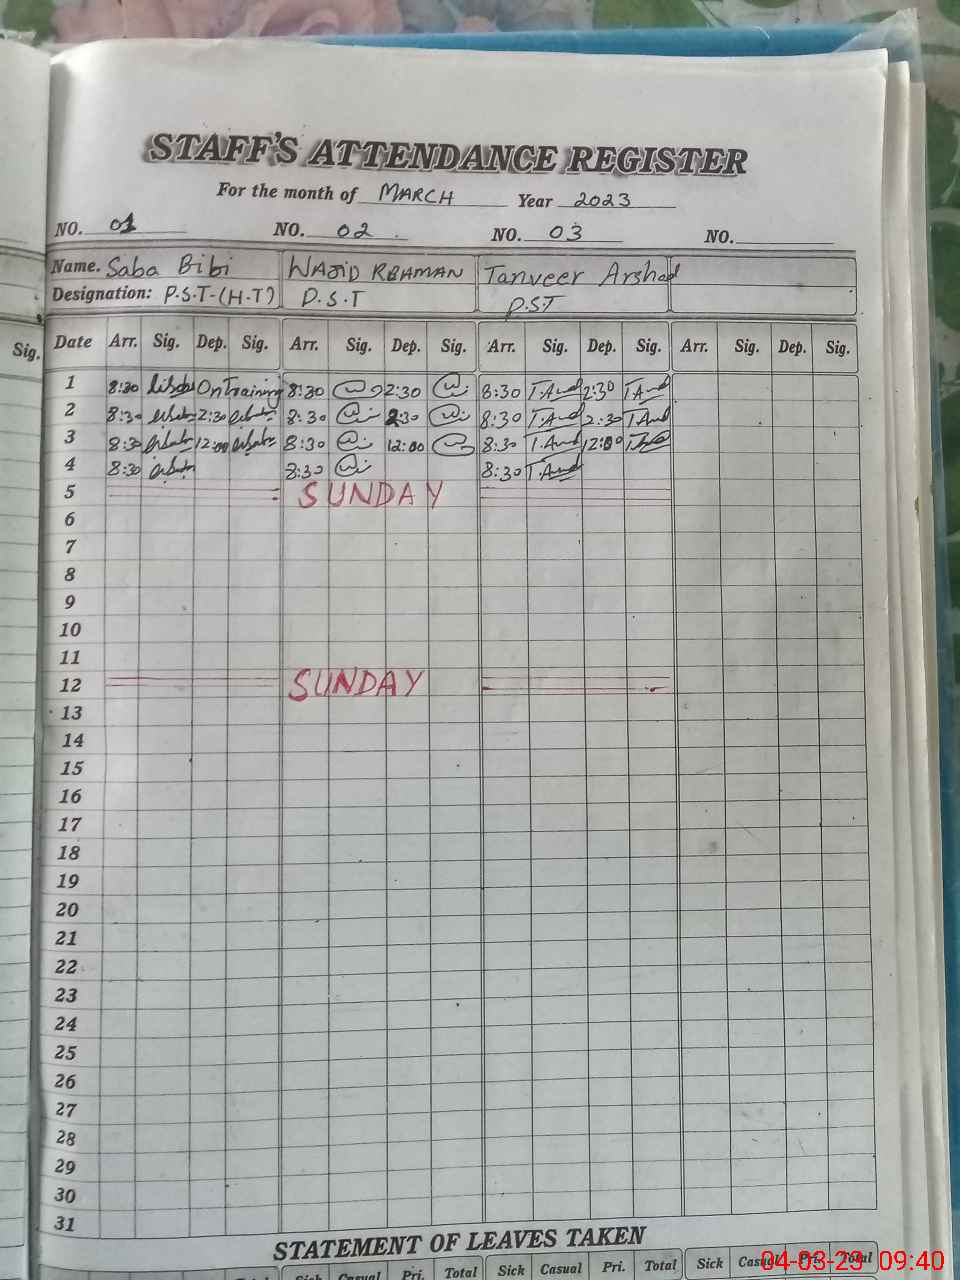 STAFF'S ATTENDANCE REGISTER
For the month of MARCH Year 2023
NO. 01 NO. 02 NO. 03 NO.
Name. Saba Bibi WAJID REHMAN Tanveer Arshad
Designation: P.S.T-(H-T) P.S.T PST
Sig. Date Arr. Sig. Dep. Sig. Arr. Sig. Dep. Sig. Arr. Sig. Dep. Sig. Arr. Sig. Dep. Sig.
1 8:30 On Training 8:30 2:30 8:30 2:30
2 8:30 2:30 8:30 2:30 8:30 2:30
3 8:30 12:00 8:30 12:00 8:30 12:00
4 8:30 8:30 8:30
5 SUNDAY
6
7
8
9
10
11
12 SUNDAY
13
14
15
16
17
18
19
20
21
22
23
24
25
26
27
28
29
30
31
STATEMENT OF LEAVES TAKEN
Sick Casual Pri. Total Sick Casual Pri. Total Sick Casual Pri. Total
04-03-23 09:40